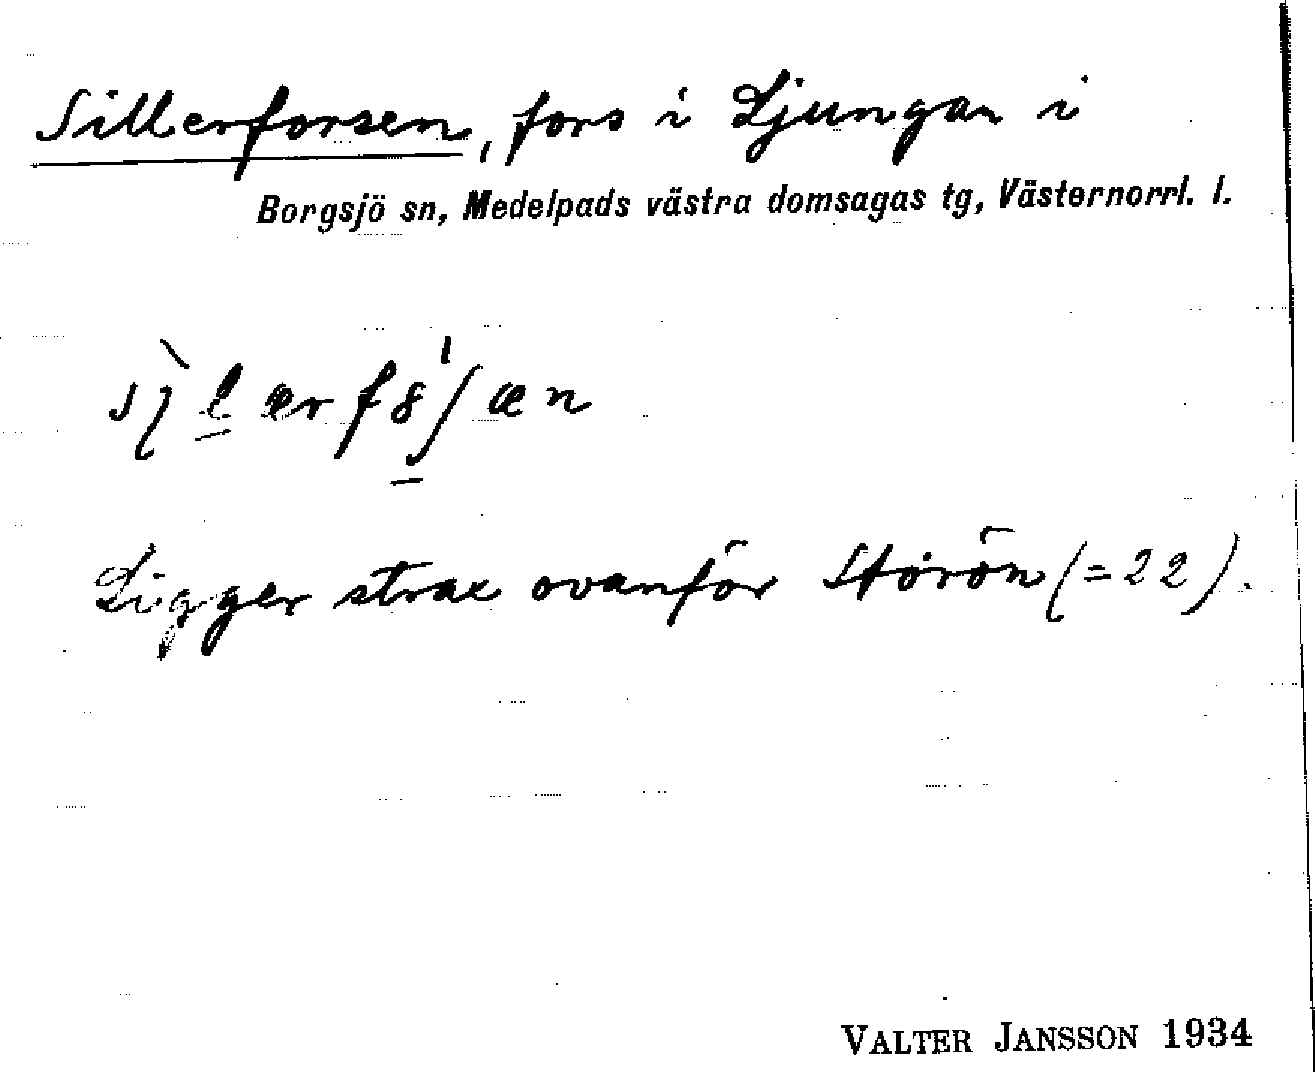 Sillerforsen, fors i Ljungan i
Borgsjö sn, Medelpads västra domsagas tg, Västernorrl. l.
Ligger strax ovanför Storön (=22).
VALTER JANSSON 1934